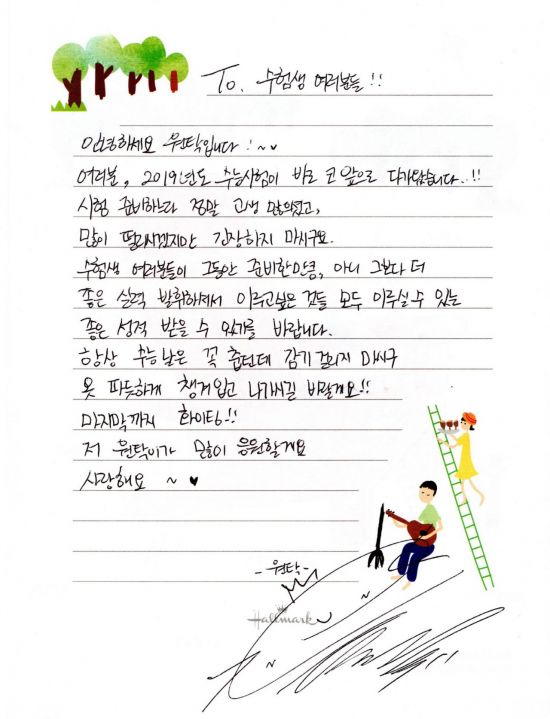 To. 수험생 여러분들 !!
안녕하세요 원탁입니다 !~♥
여러분, 2019년도 수능시험이 바로 코 앞으로 다가왔습니다..!!
시험 준비하느라 정말 고생 많으셨고,
많이 떨리시겠지만 긴장하지 마시구요.
수험생 여러분들이 그동안 준비한만큼, 아니 그보다 더
좋은 실력 발휘하셔서 이루고싶은 것들 모두 이루실 수 있는
좋은 성적 받을 수 있기를 바랍니다.
항상 수능날은 꼭 춥던데 감기 걸리지 마시구
옷 따듯하게 챙겨입고 나가시길 바랄게요!!
마지막까지 화이팅!!
저 원탁이가 많이 응원할게요
사랑해요 ~ ♥
-원탁-
Hallmark